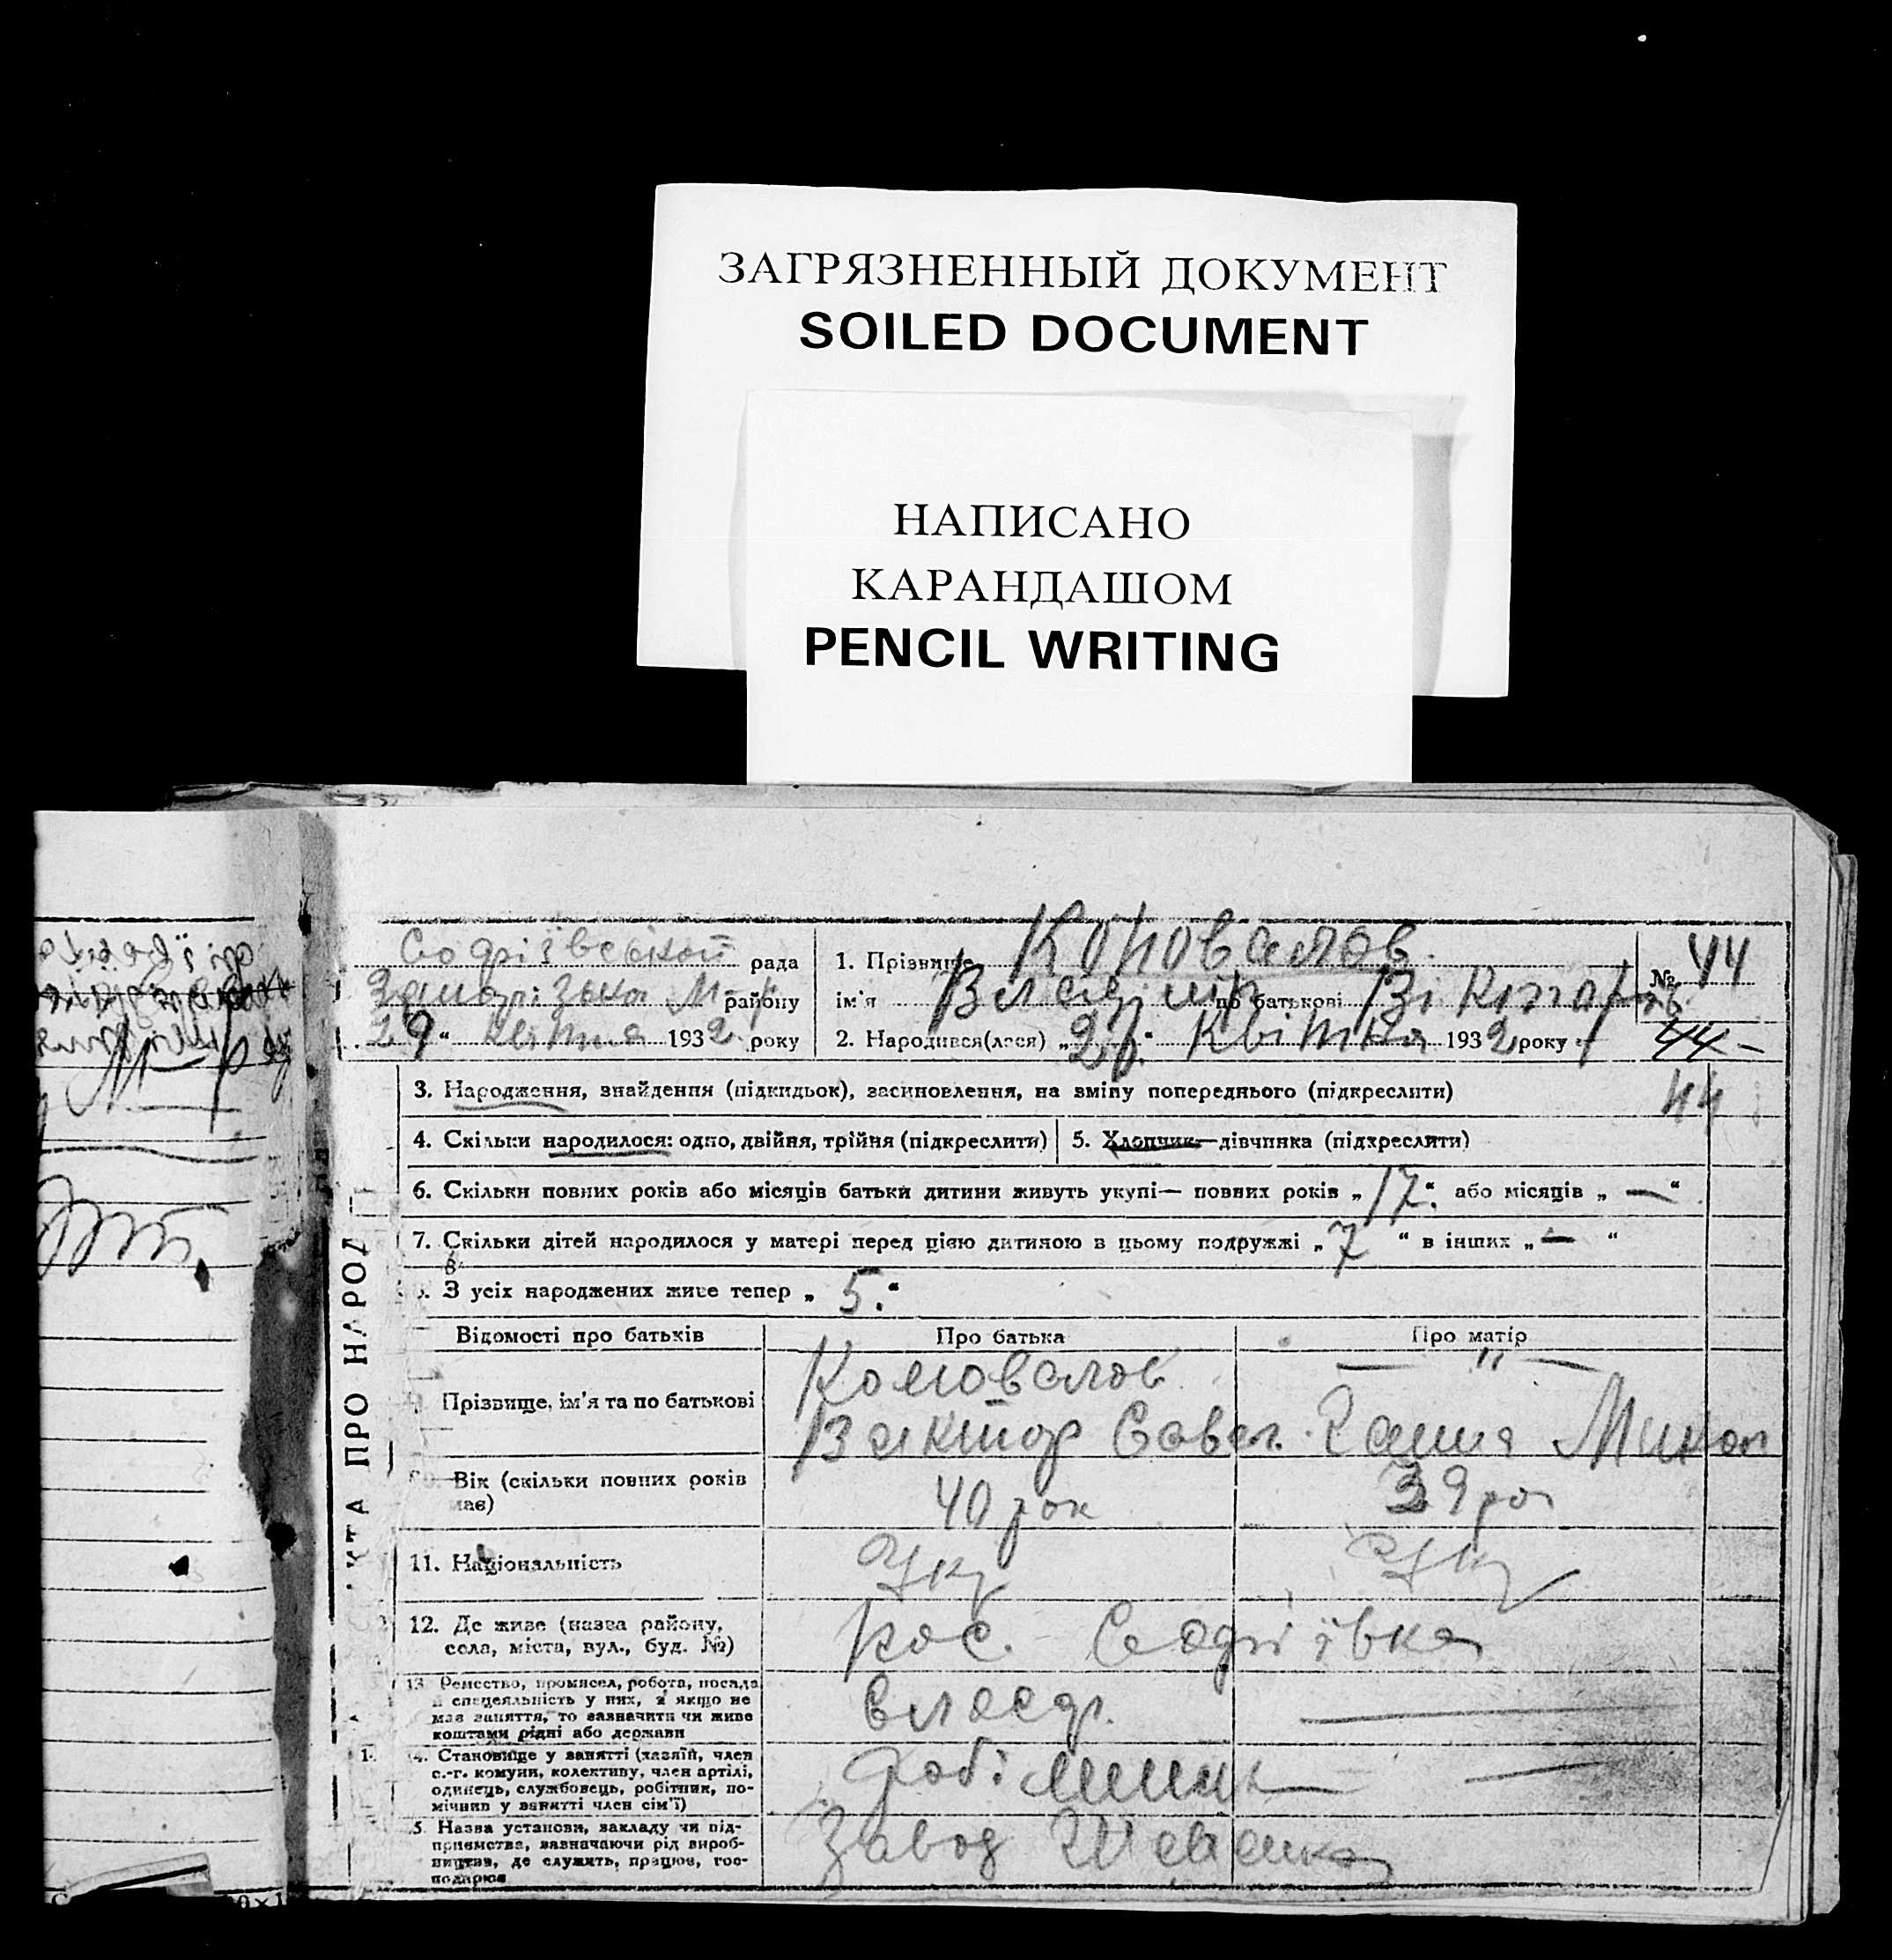 ЗАГРЯЗНЕННЫЙ ДОКУМЕНТ
SOILED DOCUMENT
НАПИСАНО
КАРАНДАШОМ
PENCIL WRITING
Софіївской рада
району
29 " квітня 1932 року
1. Прізвище Коновалов
ім'я Владімір по батькові Віктор
2. Народився(лася) „ " квітня 1932 року
№ 44
44 –
44
3. Народження, знайдення (підкидьок), засиновлення, на зміну попереднього (підкреслити)
4. Скільки народилося: одно, двійня, трійня (підкреслити)
5. Хлопчик—дівчинка (підкреслити)
6. Скільки повних років або місяців батьки дитини живуть укупі— повних років „ 17 " або місяців „ — "
7. Скільки дітей народилося у матері перед цією дитиною в цьому подружжі „ 7 " в інших „ — "
З усіх народжених живе тепер „ 5. "
Відомості про батьків
Про батька
Про матір
Прізвище, ім'я та по батькові
Коновалов
— " —
Виктор Савел.
Ганна Микол
Вік (скільки повних років
має)
40 рок
39 ро
11. Національність
Укр
Укр
12. Де живе (назва району,
села, міста, вул., буд. №)
пос. Софіївка
13 Ремество, промисел, робота, посада
й спецеяльність у них, а якщо не
має заняття, то зазначити чи живе
коштами рідні або держави
слюсар.
4. Становище у занятті (хазяїн, член
с.-г. комуни, колективу, член артілі,
одинець, службовець, робітник, по-
мічник у занятті член сім'ї)
робітник
5. Назва установи, закладу чи під-
приємства, зазначаючи рід вироб-
ництва, де служить, працює, гос-
подарює
Завод
КТА ПРО НАРОД